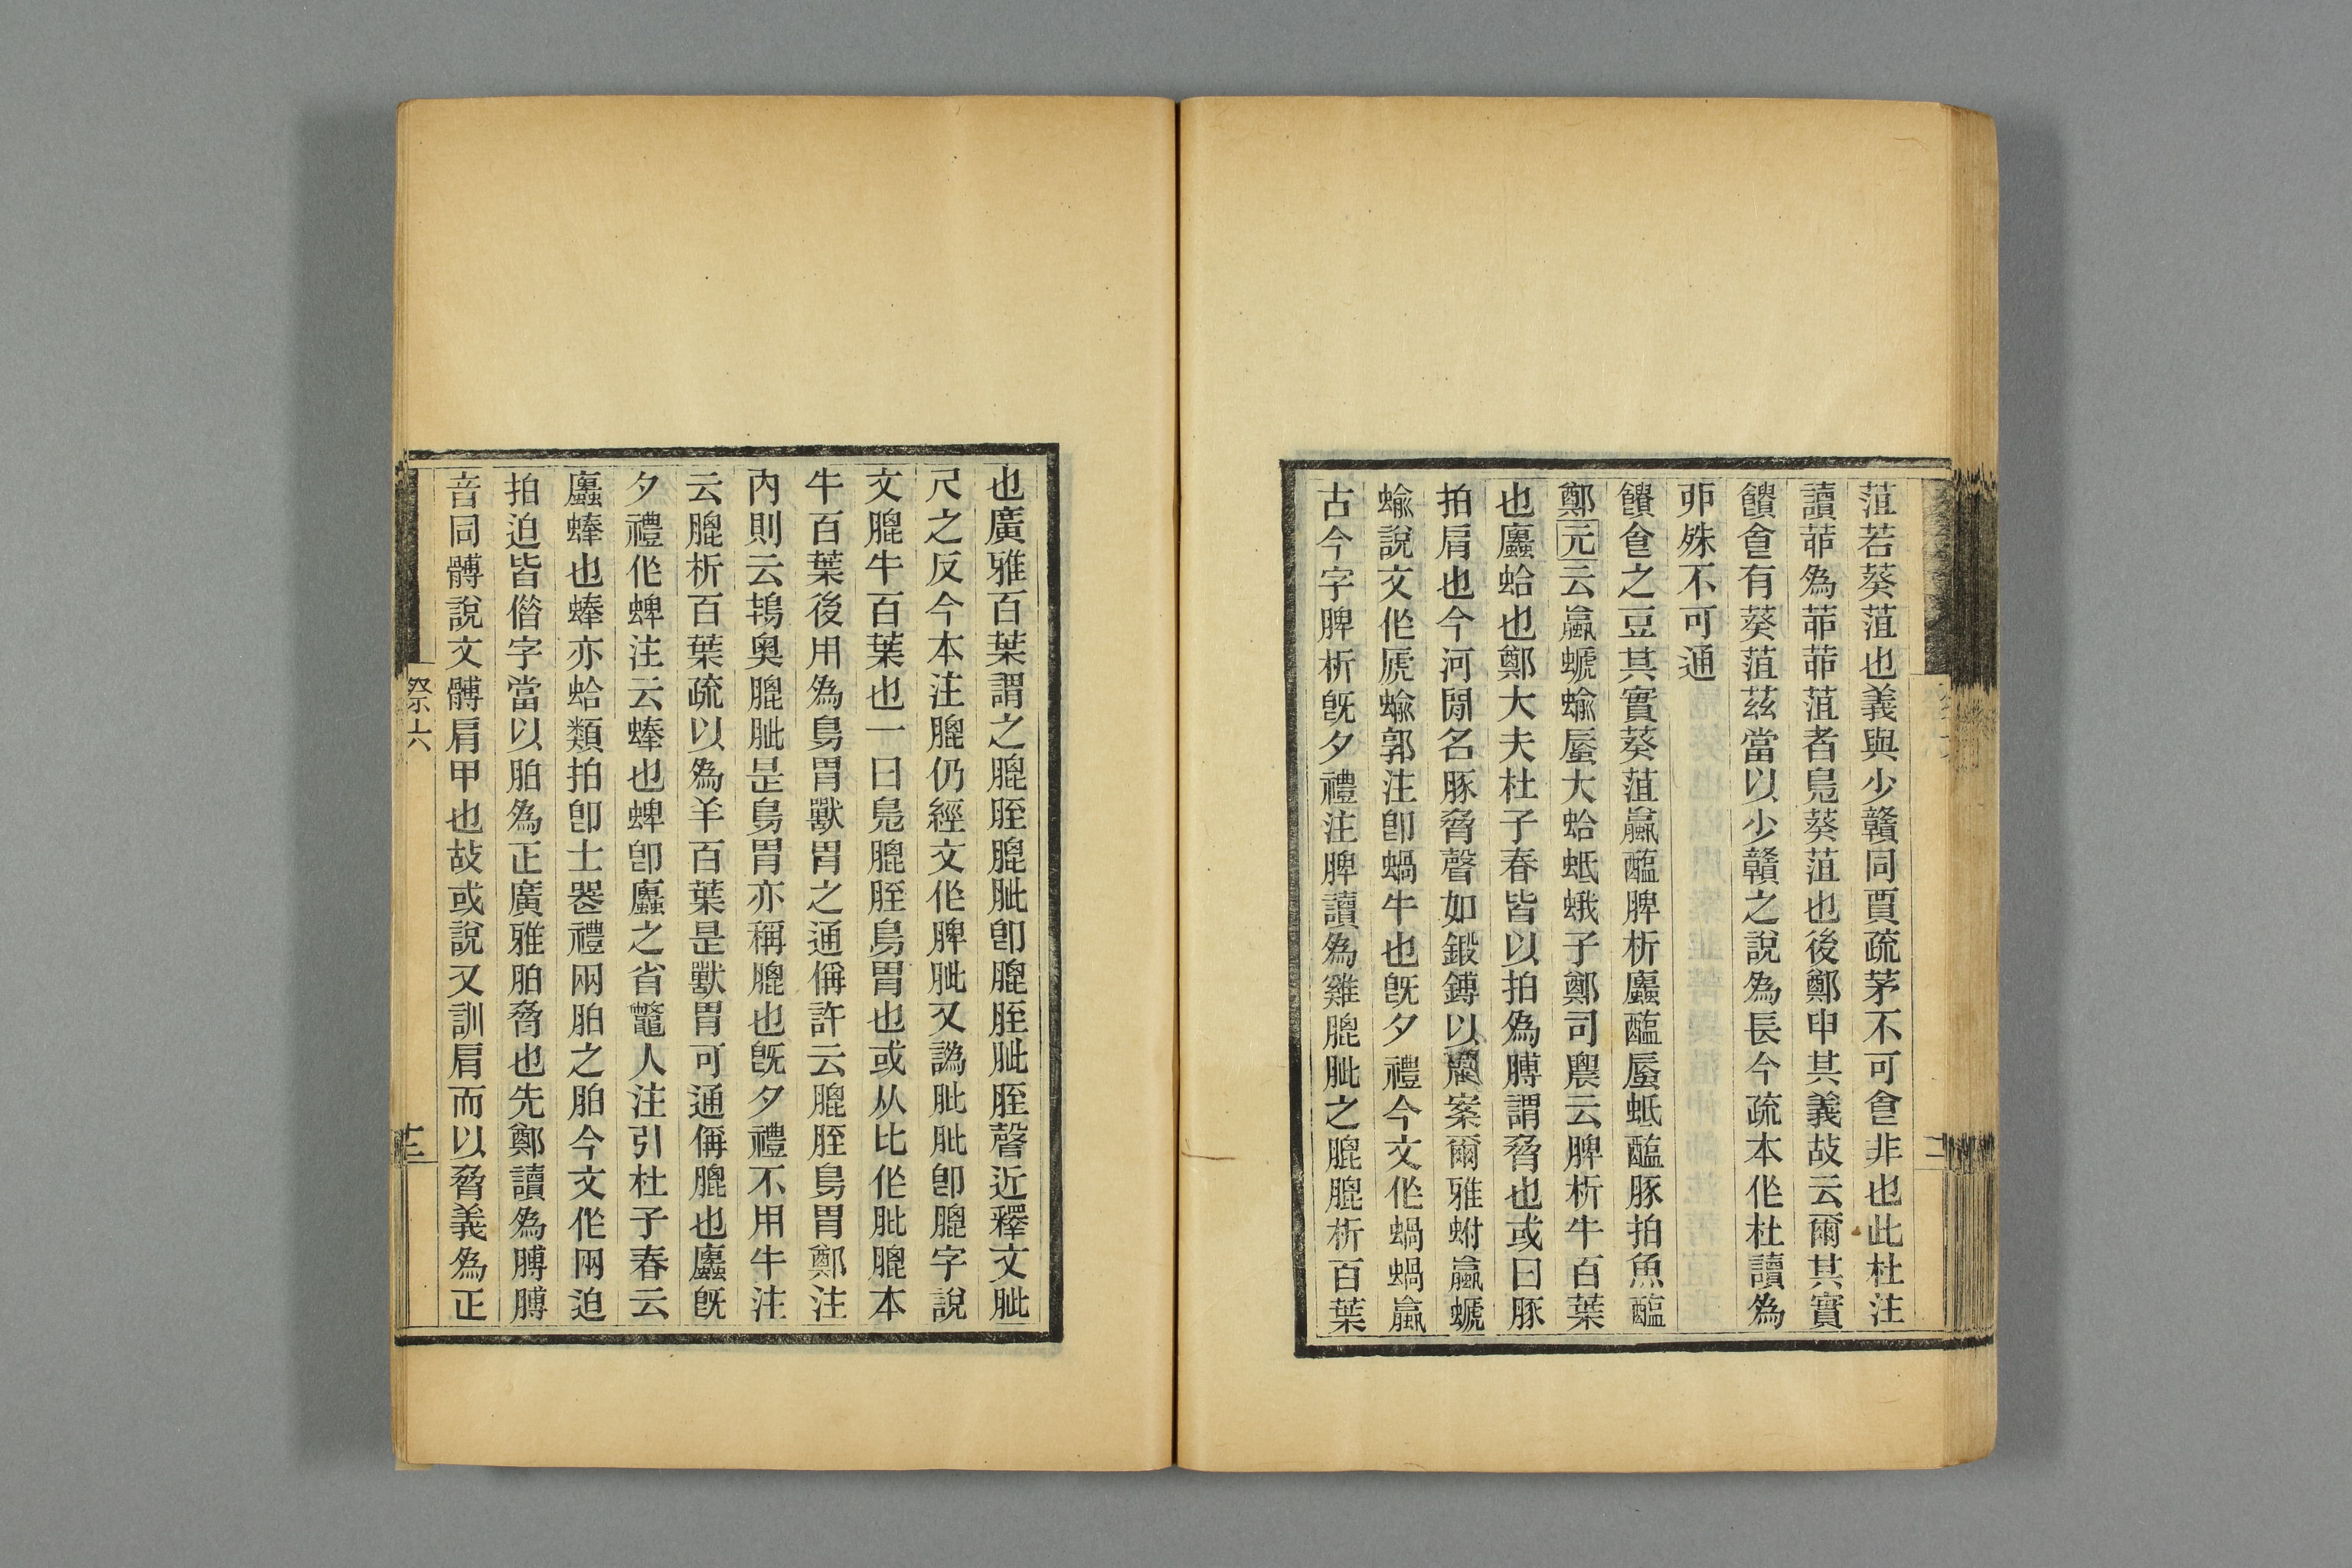 菹若葵菹也義與少贛同賈疏茅不可𠊊非也此杜注
讀茆為茆茆菹者鳧葵菹也後鄭申其義故云爾其實
饋𠊊有葵菹茲當以少贛之說為長今疏本作杜讀為
茆殊不可通
饋𠊊之豆其實葵菹蠃醢脾析蠯醢蜃蚳醢豚拍魚醢
鄭元云蠃螔蝓蜃大蛤蚳蛾子鄭司農云脾析牛百葉
也蠯蛤也鄭大夫杜子春皆以拍為膊謂脅也或曰豚
拍肩也今河閒名豚脅聲如鍛鎛以蘭案爾雅蚹蠃螔
蝓說文作虒蝓郭注卽蝸牛也旣夕禮今文作蝸蝸蠃
古今字脾析旣夕禮注脾讀為雞膍胵之膍膍析百葉
也廣雅百葉謂之膍胵膍𦙼卽膍胵𦙼胵聲近釋文𦙼
尺之反今本注膍仍經文作脾𦙼又譌𦙼𦙼卽膍字說
文膍牛百葉也一曰鳧膍胵鳥胃也或从比作肶膍本
牛百葉後用為鳥胃獸胃之通偁許云膍胵鳥胃鄭注
內則云鴇奧膍𦙼是鳥胃亦稱膍也旣夕禮不用牛注
云膍析百葉疏以為羊百葉是獸胃可通偁膍也蠯旣
夕禮作蜱注云蜯也蜱卽蠯之省鼈人注引杜子春云
蠯蜯也蜯亦蛤類拍卽士喪禮兩胉之胉今文作兩迫
拍迫皆偕字當以胉為正廣雅胉脅也先鄭讀為膊膊
音同髆說文髆肩甲也故或說又訓肩而以脅義為正
祭六
十三